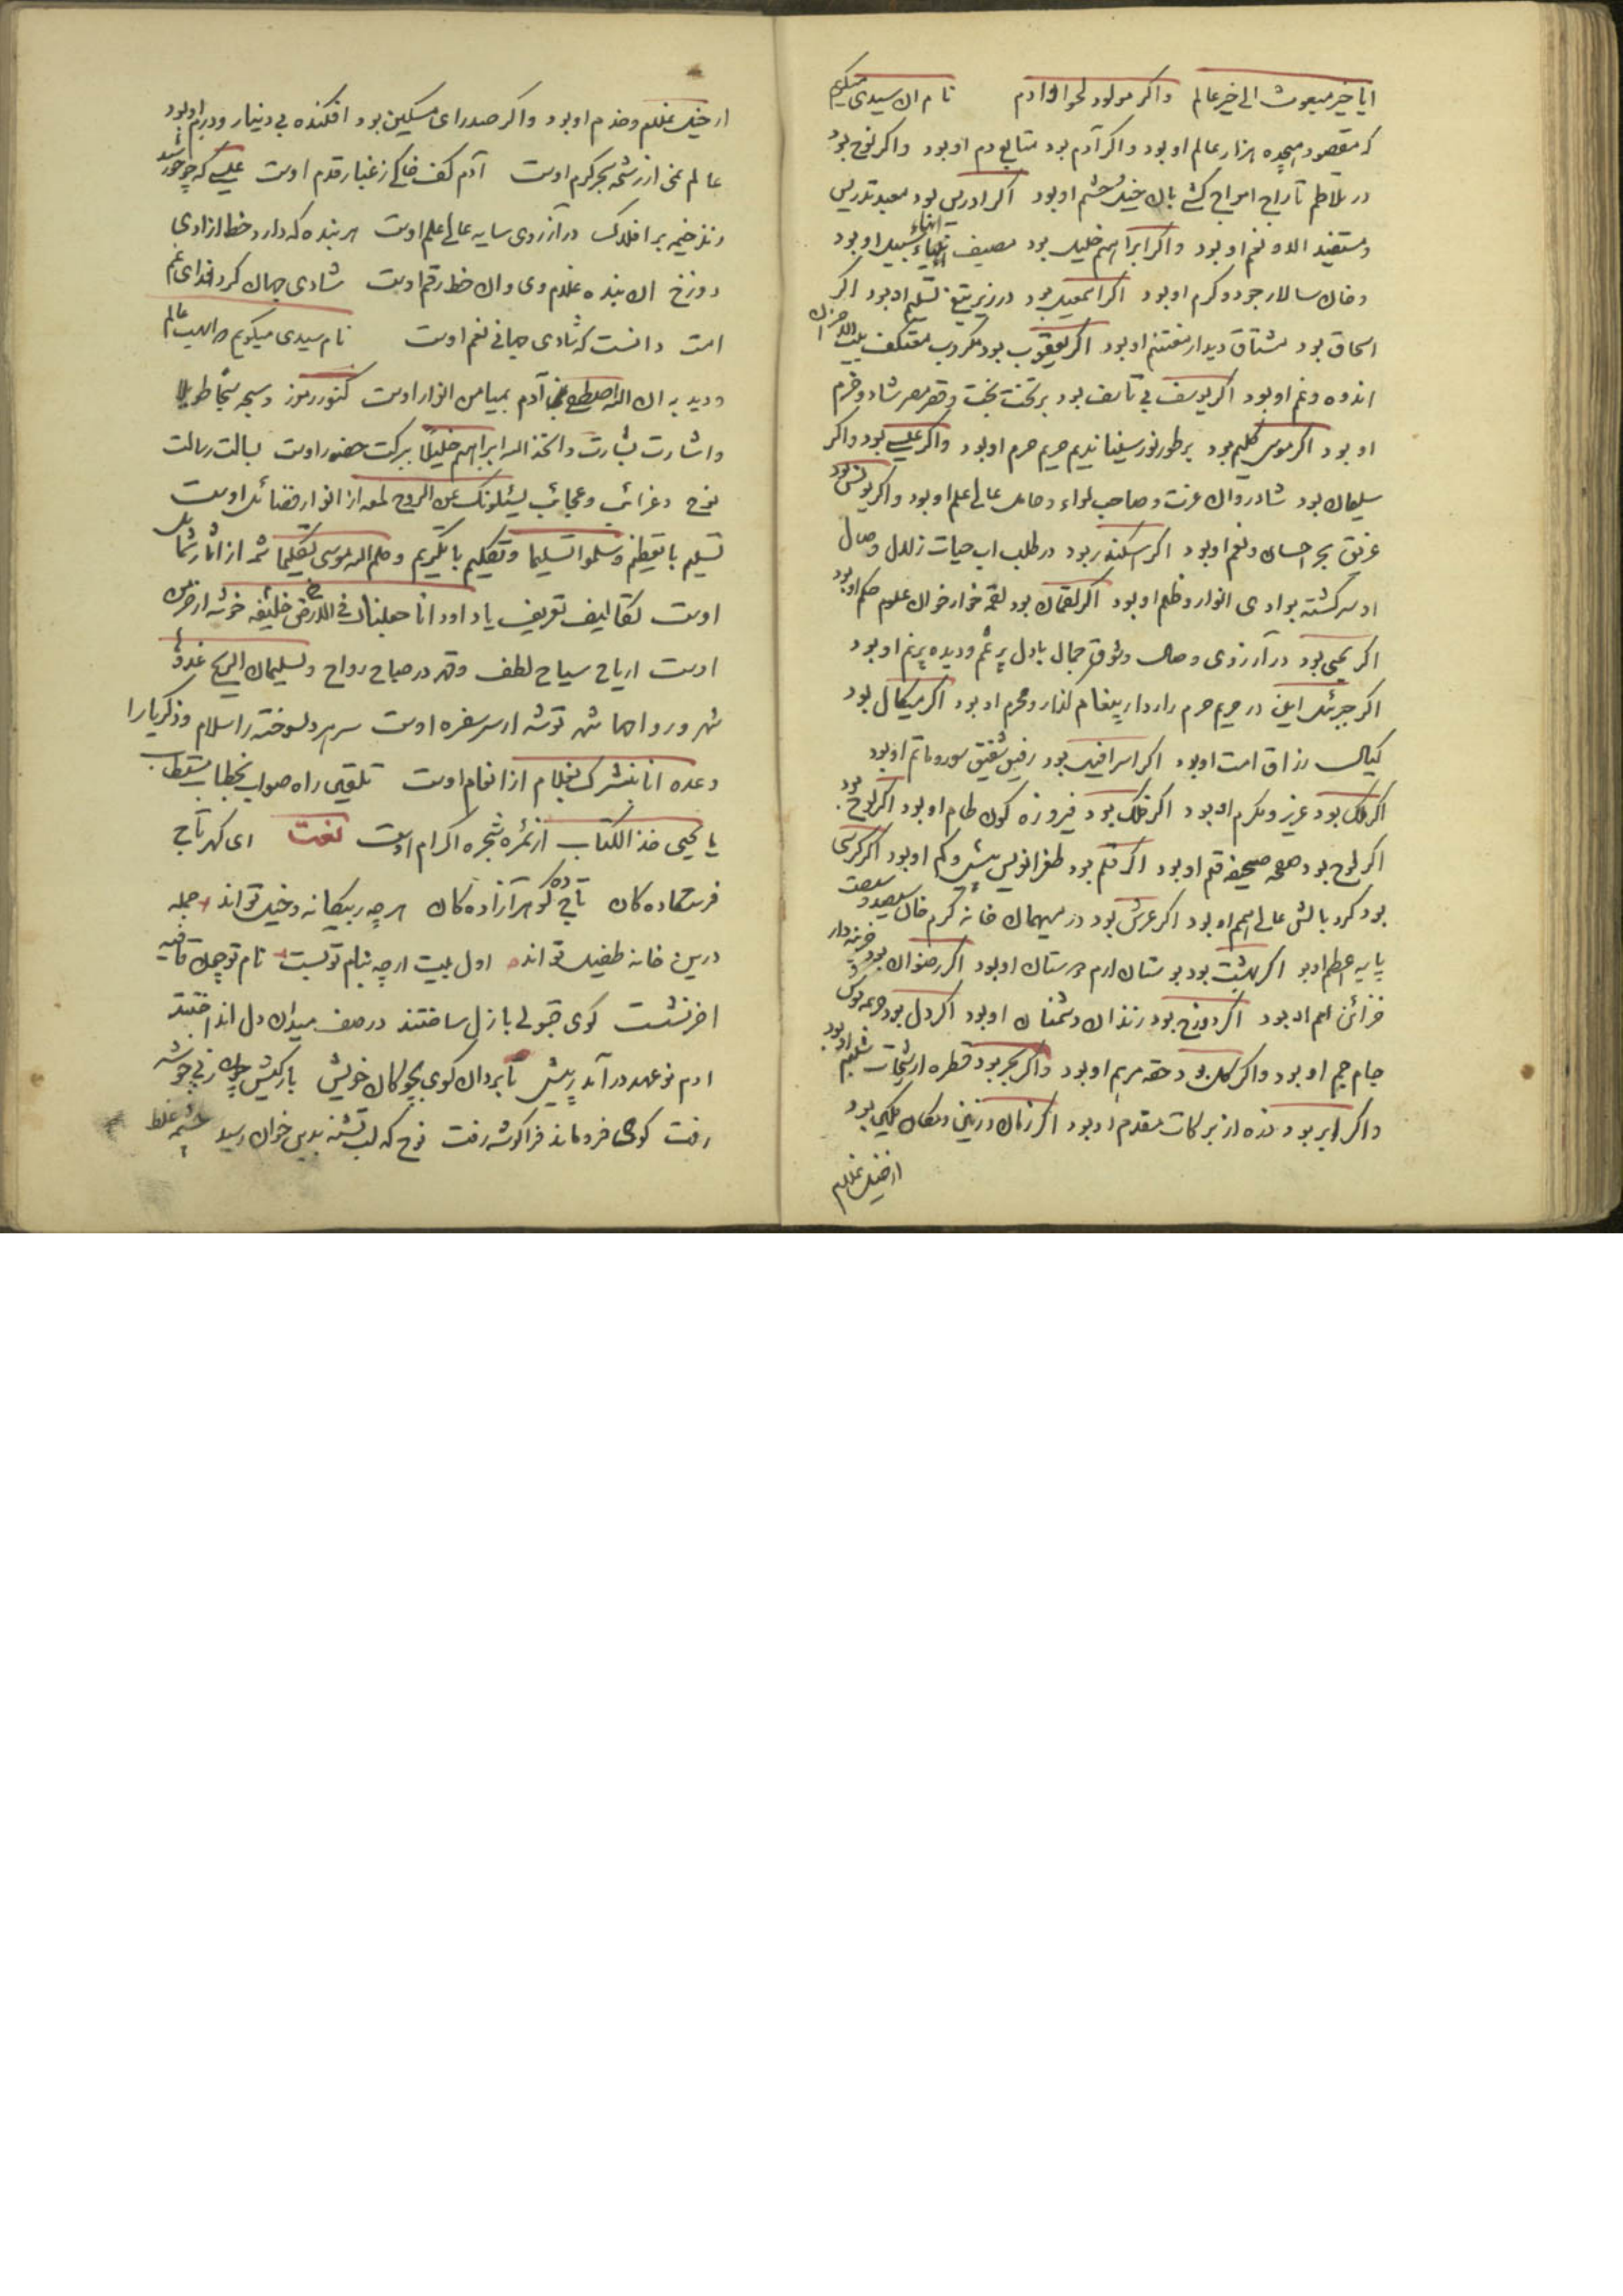 ایا خیر مبعوث الی خیر عالم واکر مولود لحوا وادم نام ان سیدی میکویم
که مقصود هیجده هزار عالم او بود واکر آدم بود متابع دم او بود واکر نوح بود
در تلاطم تاراج امواج کشتی بان خیل حشم او بود اکر ادریس بود معید تدریس
ومستفید الاو نعم او بود واکر ابراهیم خلیل بود مضیف سبیل او بود
وخان سالار جود وکرم او بود اکر اسمعیل بود در زیر تیغ تسلیم او بود اکر
اسحاق بود مشتاق دیدار مغتنم او بود اکر یعقوب بود مکروب معتکف بیت الاحزان
اندوه وغم او بود اکر یوسف بی تاسف بود بر تخت بخت وقصر مصر شاد وخرم
او بود اکر موسی کلیم بود بر طور نور سینا ندیم حریم حرم او بود واکر عیسی بود واکر
سلیمان بود شادروان عزت وصاحب لواء وحامل عالی علم او بود واکر یونس بود
غریق بحر احسان ونعم او بود اکر اسکندر بود در طلب اب حیات زلال وصال
او سرکشته بوادی انوار وظلم او بود اکر لقمان بود لقمه خوار خوان علوم حکم او بود
اکر یحیی بود در آرزوی وصال وشوق جمال بادل پر غم ودیده پر نم او بود
اکر جبرئیل امین در حریم حرم رازدار پیغام لذار ومحرم او بود اکر میکائیل بود
کیال رزاق امت او بود اکر اسرافیل بود رفیق شفیق سور وماتم او بود
اکر ملک بود عزیز ومکرم او بود اکر فلک بود فیروزه کون طام او بود اکر لوح بود
اکر لوح بود صفحه صحیفه قم او بود اکر قلم بود طغرانویس بیش وکم او بود اکر کرسی
بود کرد بالش عالی همم او بود اکر عرش بود در میهمان خانه کرم خان
پایه اعظم او بود اکر بهشت بود بوستان ارم دوستان او بود اکر رضوان بود خزینه دار
خزائن اهم او بود اکر دوزخ بود زندان دشمنان او بود اکر دل بود
جام جم او بود واکر کلک بود حقه مریم او بود واکر بحر بود قطره از رشحات شبنم او بود
واکر ابر بود نده از برکات مقدم او بود اکر زمان وزمین ومکان مکین بود
از خیل غلام
از خیل غلام وخدم او بود واکر صدرای مسکین بود افکنده بی دینار ودرم او بود
عالم نمی از رشحه بحر کرم اوست آدم کف خاکی ز غبار قدم اوست عیسی که چو خورشید
زند خیمه بر افلاک در آرزوی سایه عالی علم اوست هر بنده که دارد خط ازادی
دوزخ ان بنده غلام وی وان خط رقم اوست شادی جهان کرد فدای غم
امت دانست که شادی جهانی نعم اوست نام سیدی میکویم صاحب عالم
ودید به ان الله اصطفی آدم بمیامن انوار اوست کنوز رموز وسبحه سبحا طویلا
واشارت بشارت واتخذ الله ابراهیم خلیلا ببرکت حضور اوست بسالت رسالت
نوح وغرائب وعجائب یسئلونک عن الروح لمعه از انوار فضائل اوست
تسلیم با تعظیم وسلموا تسلیما وتکلیم با تکریم وکلم الله موسی تکلیما شمه از اثار شمائل
اوست تکالیف تعریف یا داود انا جعلناک فی الارض خلیفه خوشه از خرمن
اوست اریاح سیاح لطف وقهر در صباح رواح ولسلیمان الریح غدوها
شهر ورواحها شهر توشه از سر سفره اوست سر هر دلسوخته را اسلام وزکریا را
وعده انا نبشرک بغلام از انعام اوست تلقین راه صواب بخطاب مستطاب
یا یحیی خذ الکتاب از ثمره شجره اکرام اوست نعت ای کهر تاج
فرستاده کان تاج ده کوهر آزاده کان هر چه ز بیکانه وخیل تو اند جمله
درین خانه طفیل تو اند اول بیت ار چه بنام تو بست نام تو چون قافیه
اخر نشست کوی قبولی بازل ساختند در صف میدان دل انداختند
ادم نو عهد در آمد ز پیش تا برد ان کوی بچوکان خویش بارکیش چون ز پی خوشه
رفت کوی فرو ماند فراکوشه رفت نوح که لب تشنه بدین خوان رسید چشمه غلط